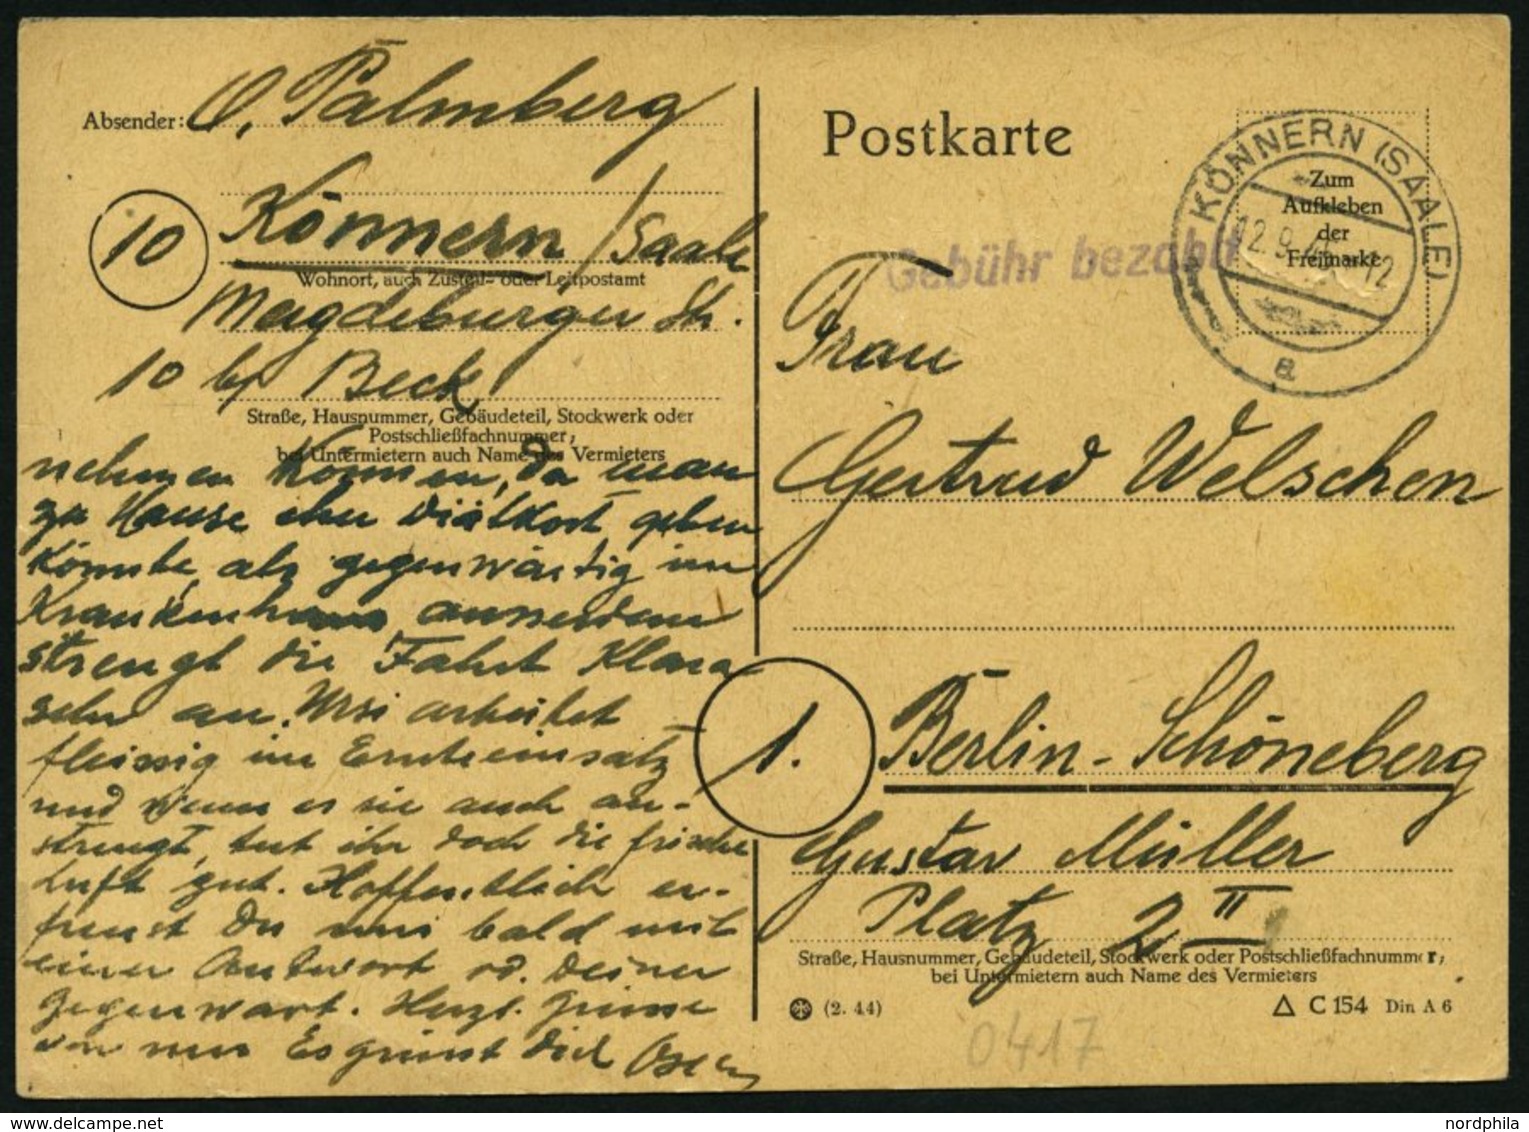 Absender: O. Palmberg
10
Könnern / Saale
Wohnort, auch Zustell- oder Leitpostamt
Magdeburger Str.
10 b/ Beck
Straße, Hausnummer, Gebäudeteil, Stockwerk oder
Postschließfachnummer;
bei Untermietern auch Name des Vermieters
nehmen können, da man
zu Hause eher Diätkost geben
könnte, als gegenwärtig im
Krankenhaus ausserdem
strengt die Fahrt Klara
sehr an. Ursi arbeitet
fleissig im Ernteeinsatz
und wenn es sie auch an-
strengt, tut ihr doch die frische
Luft gut. Hoffentlich er-
freust Du uns bald mit
einer Antwort od. Deiner
Gegenwart. Herzl. Grüsse
von uns Es grüsst Dich
Postkarte
KÖNNERN (SAALE)
12.9. 12
a
Zum
Aufkleben
der
Freimarke
Gebühr bezahlt
Frau
Gertrud Welschen
1.
Berlin-Schöneberg
Gustav Müller
Platz 2 II
Straße, Hausnummer, Gebäudeteil, Stockwerk oder Postschließfachnummer;
bei Untermietern auch Name des Vermieters
(2. 44)
C 154 Din A 6
0417
nordphila